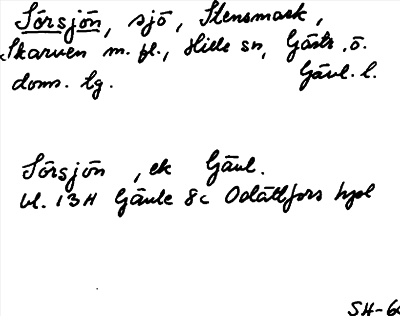 Sörsjön, sjö, Stensmark,
Skarven m. fl., Hille sn, Gästr. ö.
doms. lg. Gävl. l.
Sörsjön, ek Gävl.
bl. 13H Gävle 8c Oslättfors hpl
SH-6